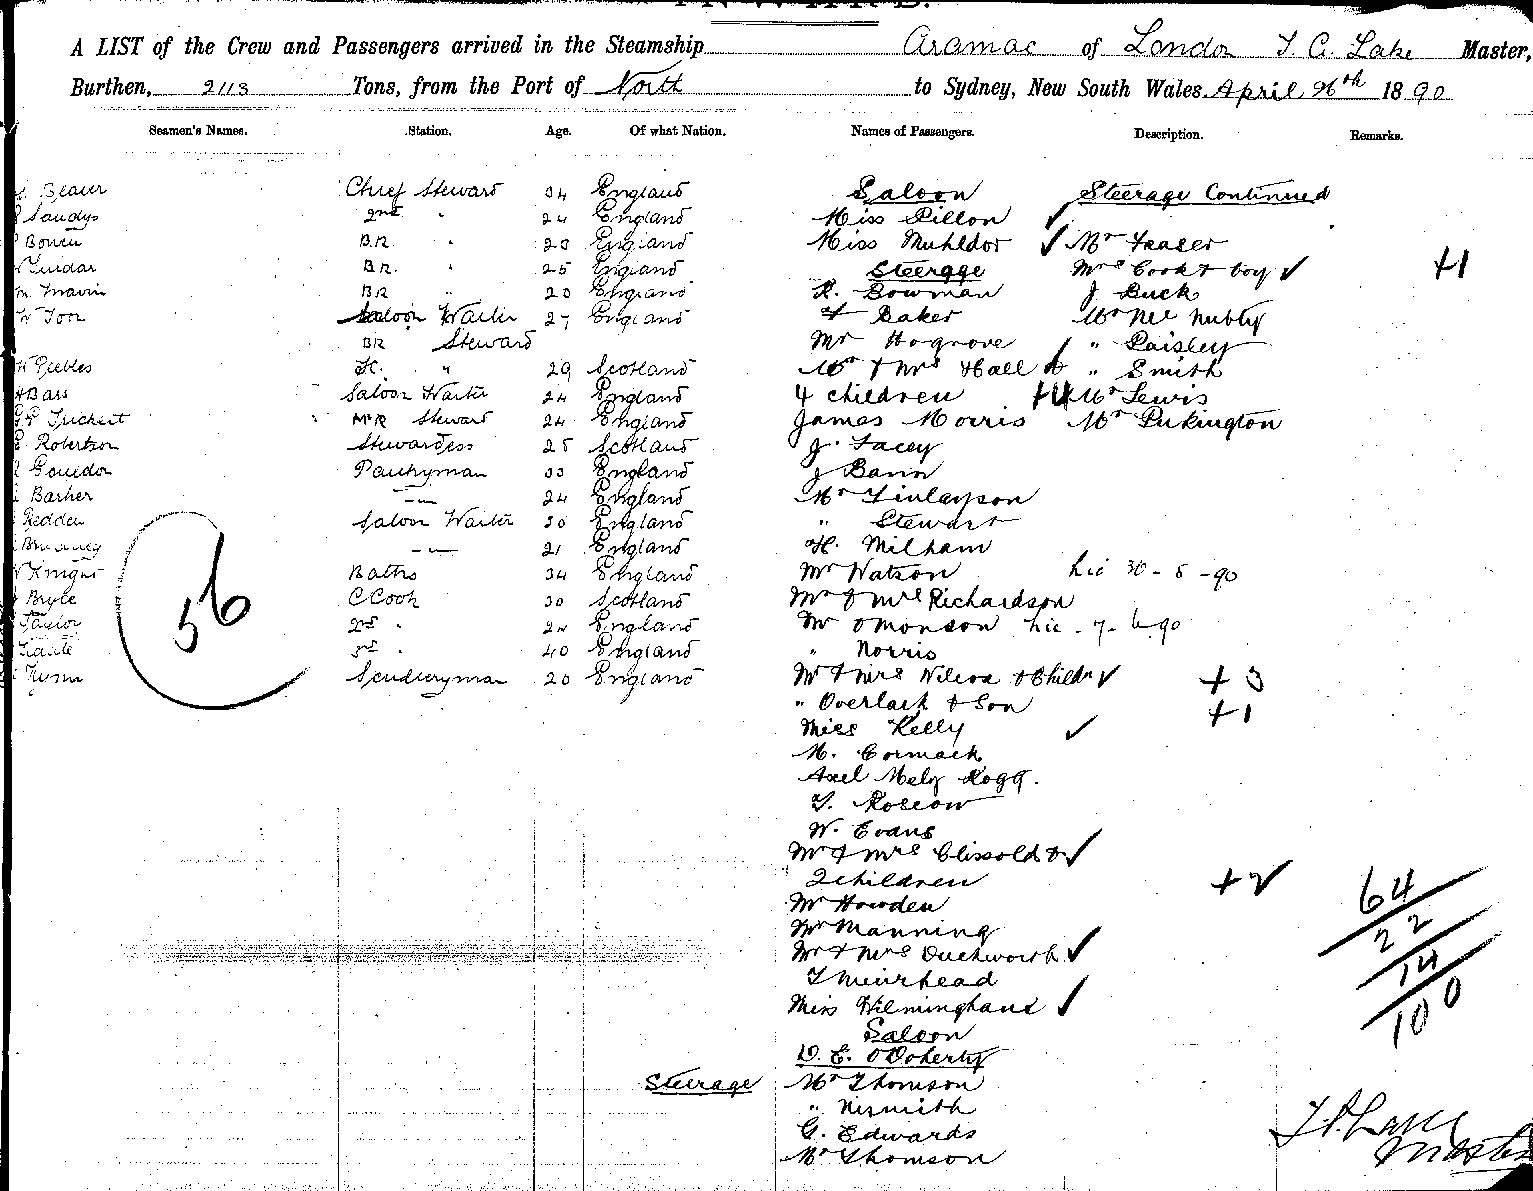 A LIST of the Crew and Passengers arrived in the Steamship Aramac of London T. A. Lake Master,
Burthen, 2113 Tons, from the Port of North to Sydney, New South Wales. April 26th 1890
Seamen's Names. Station. Age. Of what Nation. Names of Passengers. Description. Remarks.
Chief Steward 34 England Saloon Steerage Continued
Sandys 2nd " 24 England Miss Pillon ✓
Bowen B.R. " 23 England Miss Muhldor ✓ Mr Fraser
B.R. " 25 England Steerage Mrs Cook & boy ✓ +1
B.R. " 20 England R. Bowman J Buck
Saloon Waiter 27 England Baker Mr
B.R. Steward Mr Hogrove " Paisley
Peebles " 29 Scotland Mr & Mrs Hall & " Smith
Bass Saloon Waiter 24 England 4 children +4 Mr Lewis
Steward 24 England James Morris Mr Pukington
Robertson Stewardess 25 Scotland J. Facey
Pantryman 33 England J
Barber —"— 24 England Mr Finlayson
Redden Saloon Waiter 30 England " Stewart
—"— 21 England H. Milham
Knight Baths 34 England Mr Watson
Bryce C Cook 30 Scotland Mr & Mrs Richardson
Taylor 2nd " 24 England Mr OMonson
3rd " 40 England " Norris
Sculleryman 20 England Mr & Mrs Wilcox & Childn ✓ +3
56
" Overlack & Son +1
Miss Kelly ✓
M. Cormack
Axel
T. Roscow
W. Evans
Mr & Mrs Clissold & ✓
2 children +2
Mr Howden
Mr Manning
Mr & Mrs Duckworth ✓
T Muirhead
Miss Wilminghaus ✓
Saloon
D. E. ODoherty
Steerage Mr Thomson
" Nismith
G. Edwards
Mr Thomson
64
22
14
100
T. A. Lake
Master